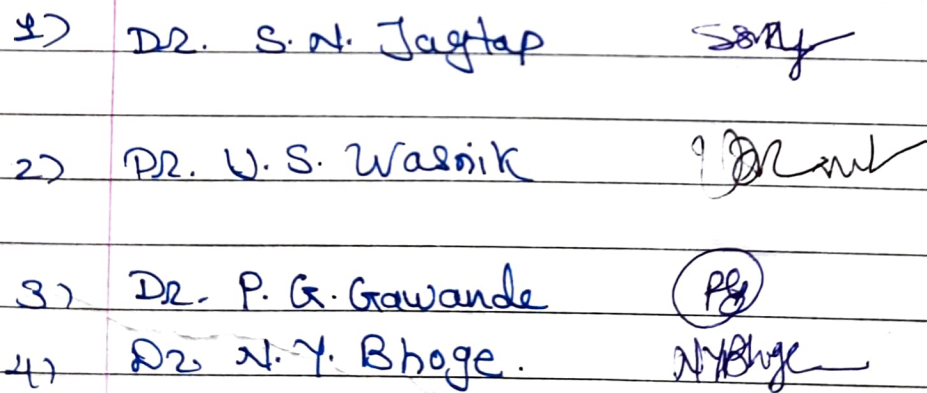 1) DR. S. N. Jagtap
2) DR. U. S. Wasnik
3) DR. P. G. Gawande
4) Dr. N. Y. Bhoge. NYBhoge